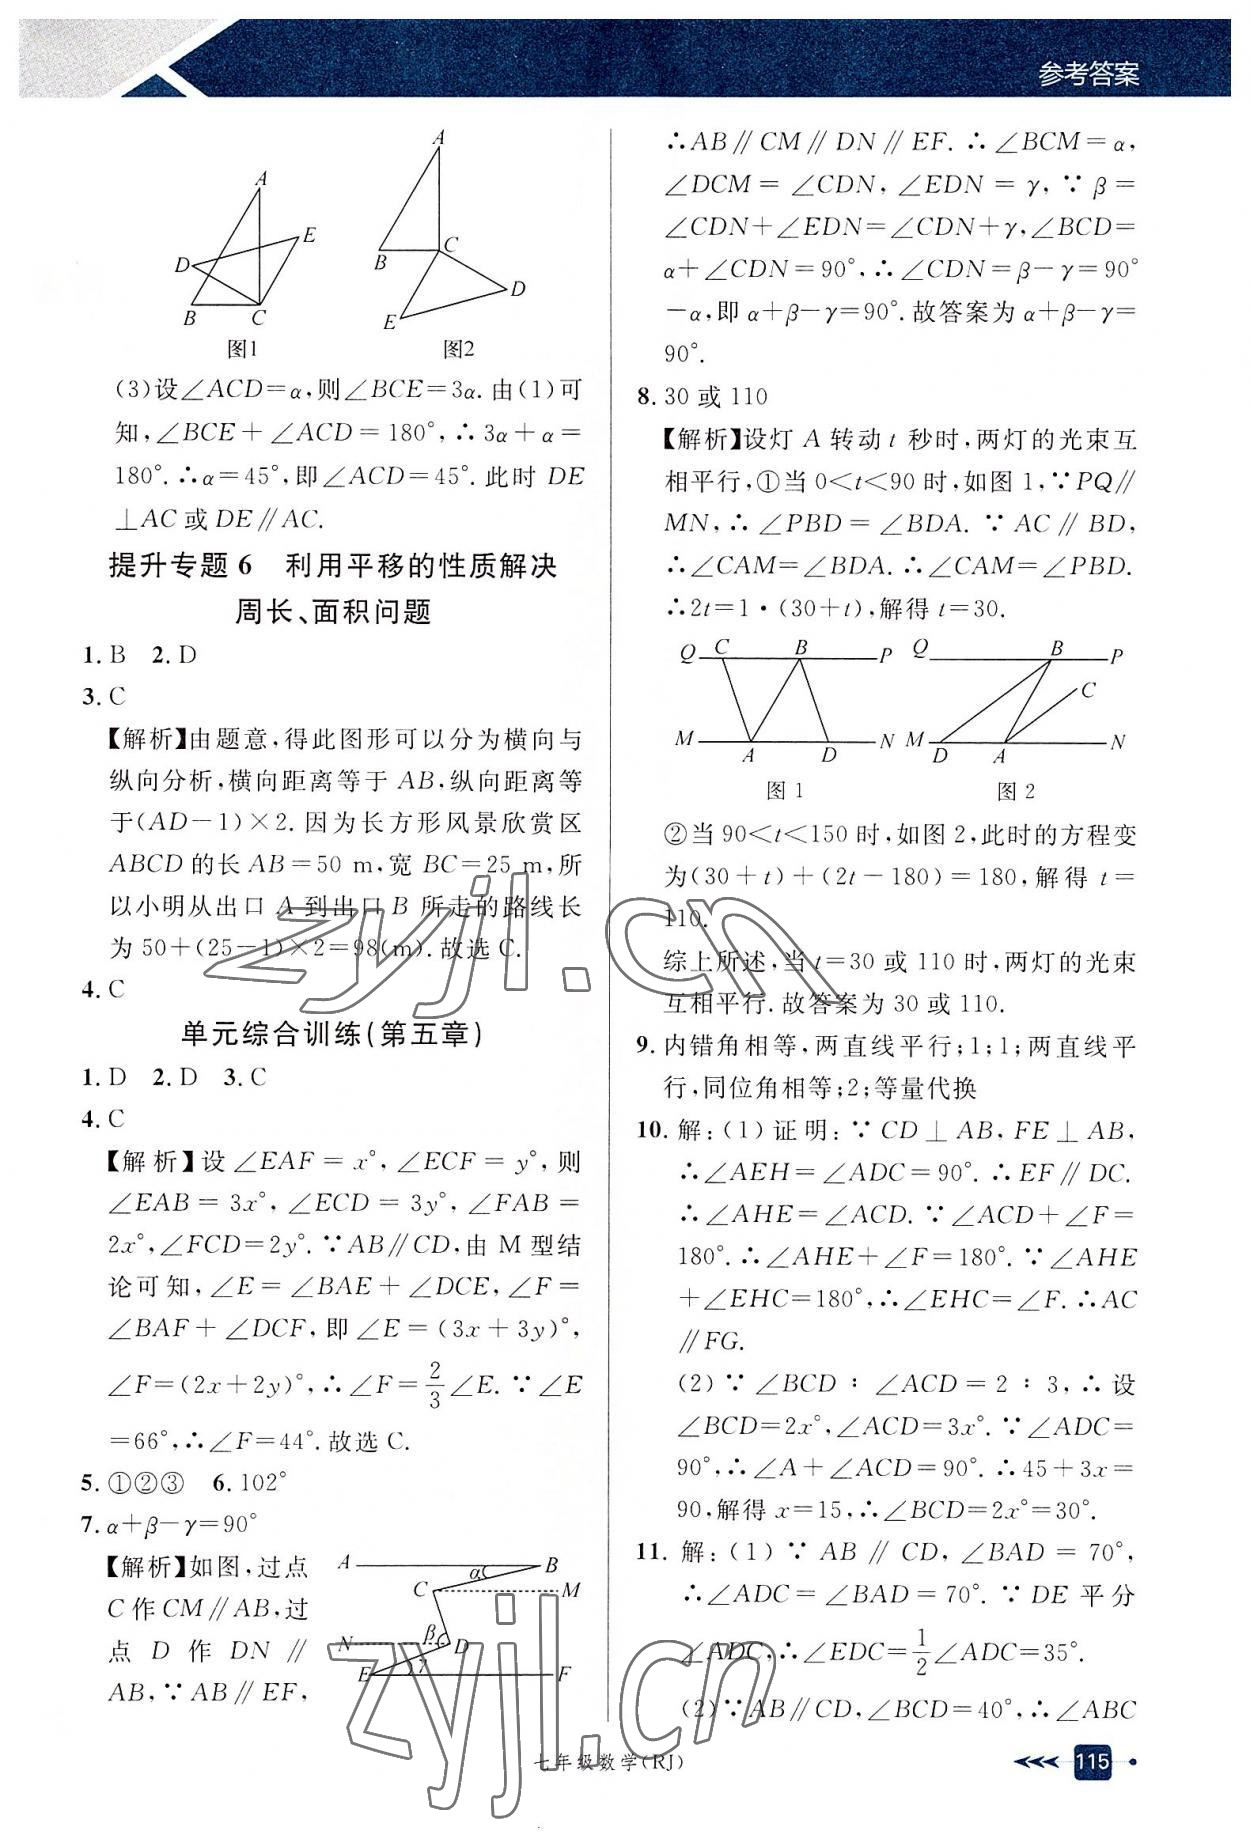 参考答案
A
E
D
B
C
图1
A
B
C
D
E
图2
(3)设∠ACD=α,则∠BCE=3α.由(1)可
知,∠BCE+∠ACD=180°,∴3α+α=
180°.∴α=45°,即∠ACD=45°.此时 DE
⊥AC或DE∥AC.
提升专题 6 利用平移的性质解决
周长、面积问题
1. B 2. D
3. C
【解析】由题意,得此图形可以分为横向与
纵向分析,横向距离等于 AB,纵向距离等
于(AD-1)×2.因为长方形风景欣赏区
ABCD 的长 AB=50 m,宽 BC=25 m,所
以小明从出口 A 到出口 B 所走的路线长
为 50+(25-1)×2=98(m).故选 C.
4. C
单元综合训练(第五章)
1. D 2. D 3. C
4. C
【解析】设∠EAF=x°,∠ECF=y°,则
∠EAB=3x°,∠ECD=3y°,∠FAB=
2x°,∠FCD=2y°.∵AB∥CD,由 M 型结
论可知,∠E=∠BAE+∠DCE,∠F=
∠BAF+∠DCF,即∠E=(3x+3y)°,
∠F=(2x+2y)°,∴∠F=2/3∠E.∵∠E
=66°,∴∠F=44°.故选 C.
5. ①②③ 6. 102°
7. α+β-γ=90°
【解析】如图,过点
C 作 CM∥AB,过
点 D 作 DN∥
AB,∵AB∥EF,
A
B
α
C
M
N
β
D
E
γ
F
∴AB∥CM∥DN∥EF.∴∠BCM=α,
∠DCM=∠CDN,∠EDN=γ,∵β=
∠CDN+∠EDN=∠CDN+γ,∠BCD=
α+∠CDN=90°,∴∠CDN=β-γ=90°
-α,即α+β-γ=90°.故答案为α+β-γ=
90°.
8. 30 或 110
【解析】设灯 A 转动 t 秒时,两灯的光束互
相平行,①当 0<t<90 时,如图 1,∵PQ∥
MN,∴∠PBD=∠BDA.∵AC∥BD,
∴∠CAM=∠BDA.∴∠CAM=∠PBD.
∴2t=1·(30+t),解得 t=30.
Q C B P
M A D N
图 1
Q B P
C
M D A N
图 2
②当 90<t<150 时,如图 2,此时的方程变
为(30+t)+(2t-180)=180,解得 t=
110.
综上所述,当 t=30 或 110 时,两灯的光束
互相平行.故答案为 30 或 110.
9. 内错角相等,两直线平行;1;1;两直线平
行,同位角相等;2;等量代换
10. 解:(1)证明:∵CD⊥AB,FE⊥AB,
∴∠AEH=∠ADC=90°.∴EF∥DC.
∴∠AHE=∠ACD.∵∠ACD+∠F=
180°.∴∠AHE+∠F=180°.∵∠AHE
+∠EHC=180°,∴∠EHC=∠F.∴AC
∥FG.
(2)∵∠BCD∶∠ACD=2∶3,∴设
∠BCD=2x°,∠ACD=3x°.∵∠ADC=
90°,∴∠A+∠ACD=90°.∴45+3x=
90,解得 x=15,∴∠BCD=2x°=30°.
11. 解:(1)∵AB∥CD,∠BAD=70°,
∴∠ADC=∠BAD=70°.∵DE 平分
∠ADC,∴∠EDC=1/2∠ADC=35°.
(2)∵AB∥CD,∠BCD=40°,∴∠ABC
七年级数学(RJ)
115
zyjl.cn
zyjl.cn